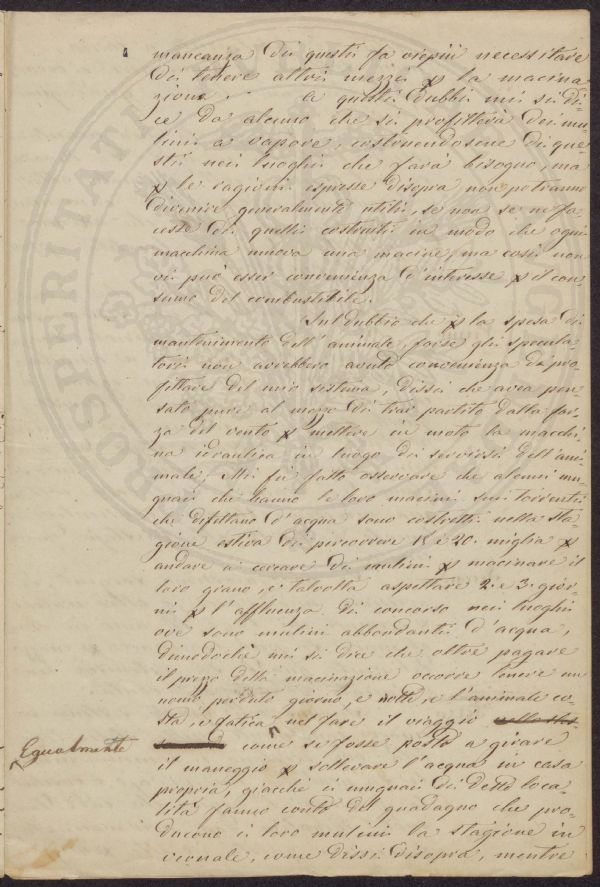 mancanza di questi fa viepiù necessitare
di tenere altri mezzi p la macina
zione. A questi dubbi mi si di=
ce da alcuno che si profitterà dei mu=
lini a vapore, costruendosene di que=
sti nei luoghi che farà bisogno, ma
p le ragioni espresse disopra non potranno
divenire generalmente utili, se non se ne fa=
cesse di quelli costruiti in modo che ogni
macchina muova una macine, ma così non
vi può esser convenienza d'interesse p il con=
sumo del combustibile.
Sul dubbio che p la spesa di
mantenimento dell'animale, forse gli specula
tori non avrebbero avuto convenienza di pro=
fittare del mio sistema, dissi che avea pen=
sato pure al mezzo di trar partito dalla for=
za del vento p mettere in moto la macchi
na idraulica in luogo di servirsi dell'ani=
male; Mi fù fatto osservare che alcuni mu=
gnai che hanno le loro macini sui torrenti
che difettano d'acqua sono costretti nella sta=
gione estiva di percorrere 18 e 20 miglia p
andare a cercare di mulini p macinare il
loro grano, e talvolta aspettare 2 e 3 gior=
ni p l'affluenza di concorso nei luoghi
ove sono mulini abbondanti d'acqua,
dimodochè mi si dice che oltre pagare
il prezzo della macinazione occorre tenere un
uomo perduto giorno, e notte, e l'animale co=
sta, e fatica nel fare il viaggio
Egualmente come se fosse posto a girare
il maneggio p sollevare l'acqua in casa
propria, giacchè i mugnai di detta loca=
lità fanno conto del guadagno che pro=
ducono i loro mulini la stagione in
vernale, come dissi disopra, mentre